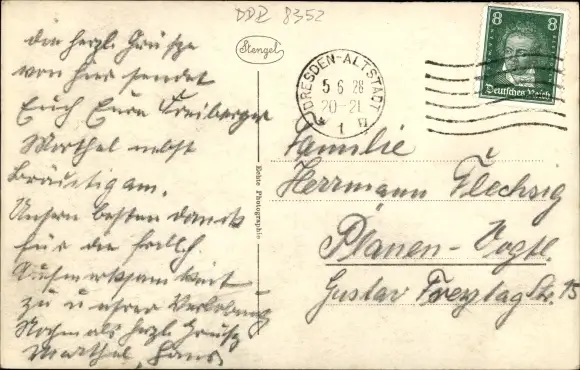 DDR 8352
Die herzl. Grüsze
von hier sendet
Euch Eure Freiberger
Marthel nebst
Bräutigam.
Unsern besten Dank
für die frdl.
Aufmerksamkeit
zu unsrer Verlobung
Nochmals herzl. Grüsze
Marthel, Hans
Stengel
Echte Photographie
DRESDEN-ALTSTADT
5 6 28
20-21
* 1 VI
8 8
Deutsches Reich
Familie
Herrmann Flechsig
Plauen-Vogtl.
Gustav Freytag Str. 15